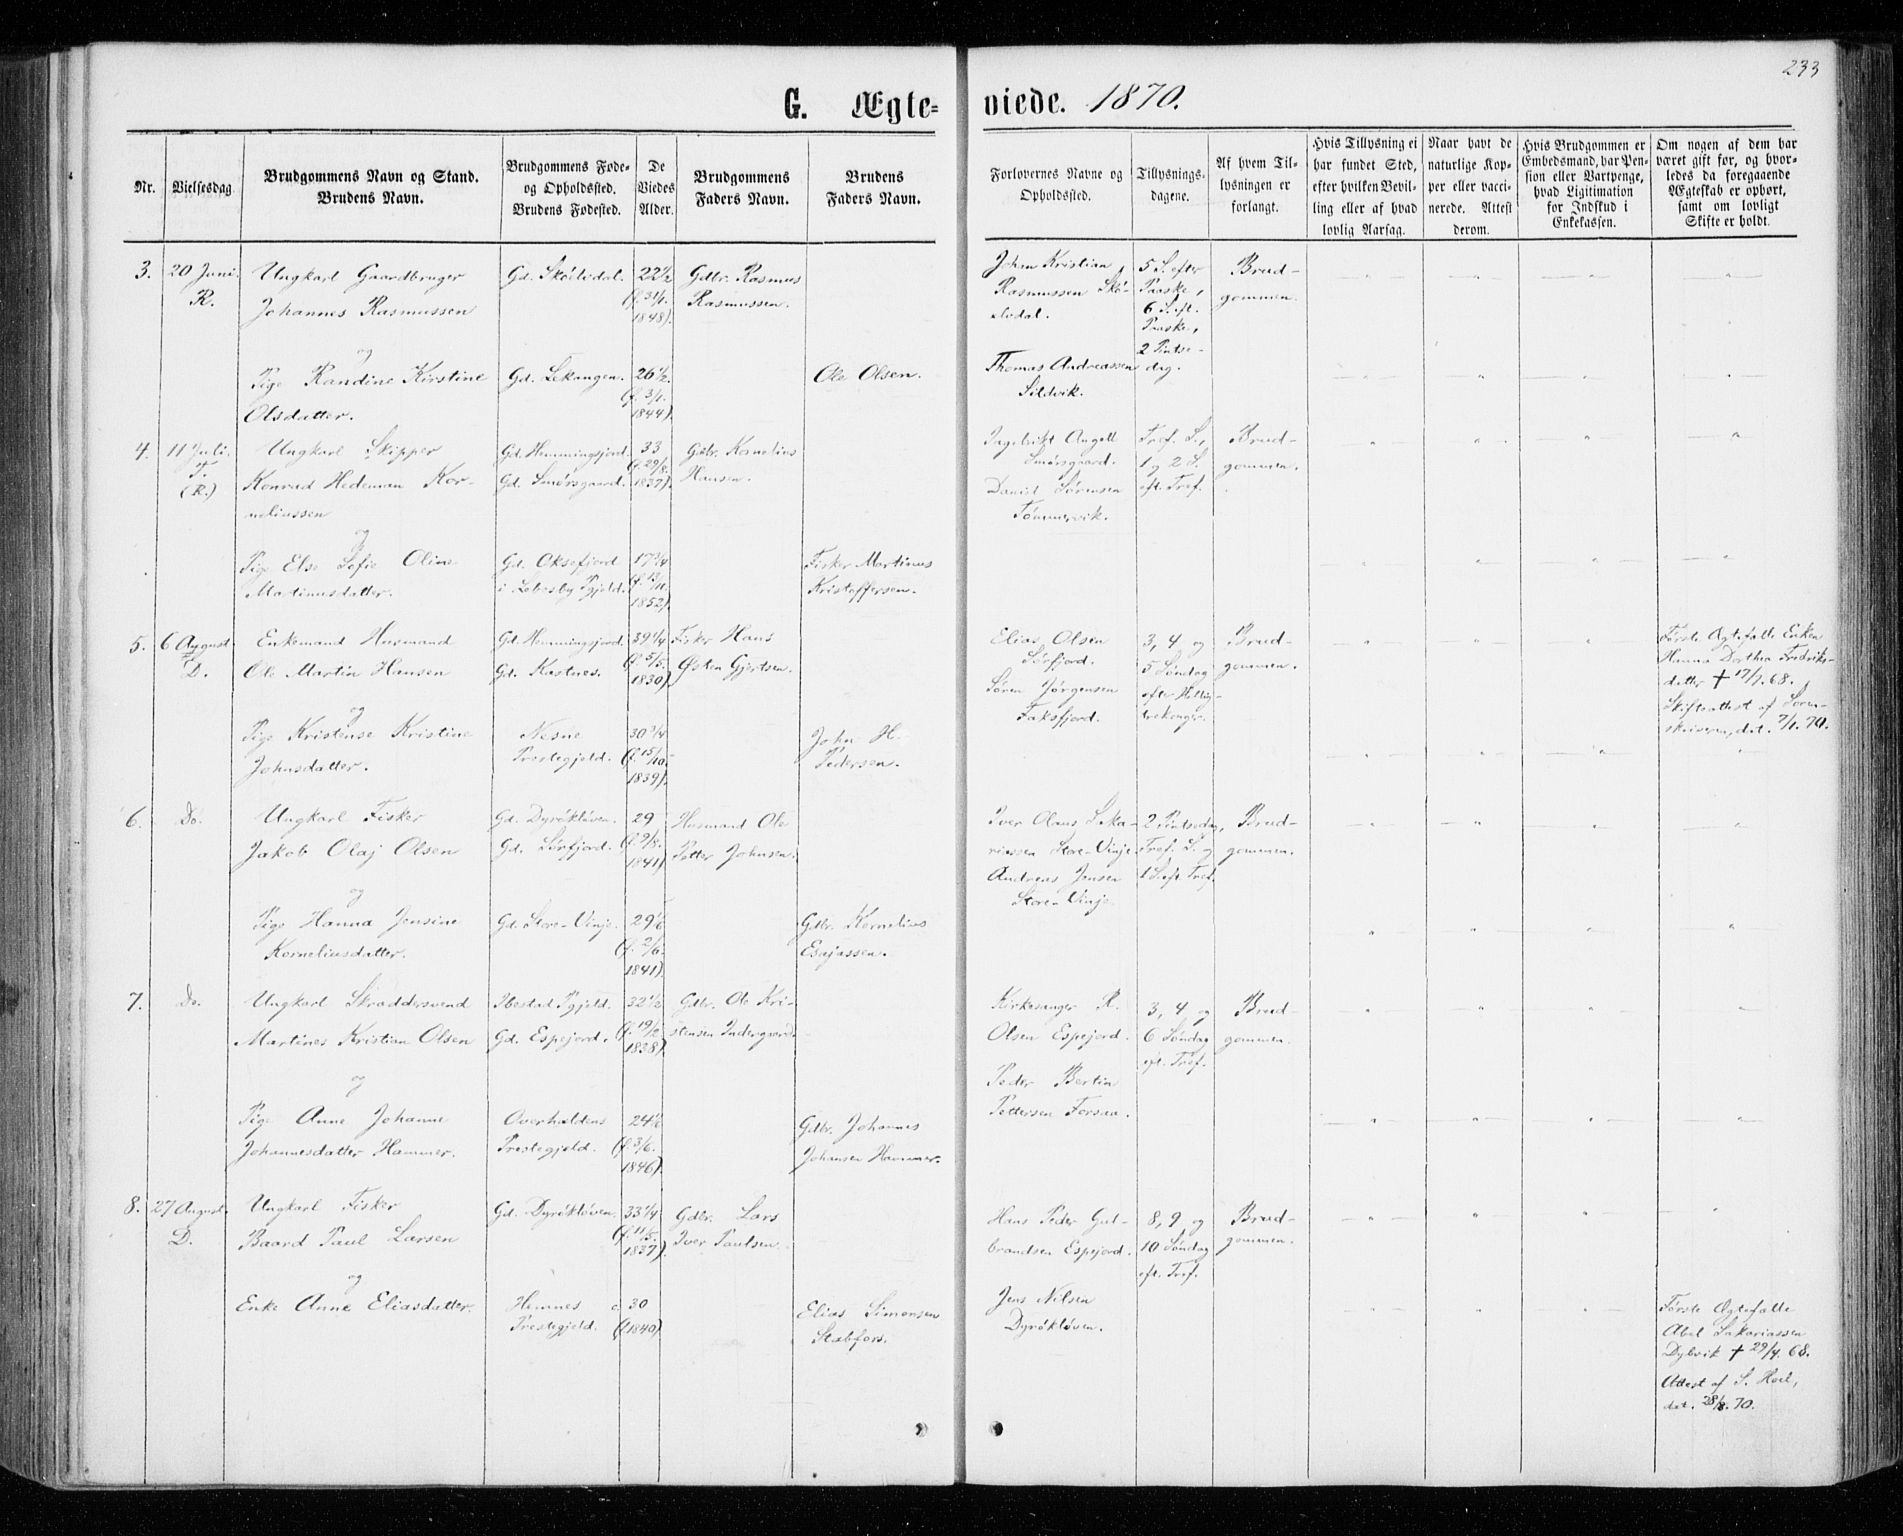 233
G. Ægte-
viede. 1870.
Nr.
Vielsesdag.
Brudgommens Navn og Stand.
Brudens Navn.
Brudgommens Føde-
og Opholdssted.
Brudens Fødested.
De
Viedes
Alder.
Brudgommens
Faders Navn.
Brudens
Faders Navn.
Forlovernes Navne og
Opholdssted.
Tillysnings-
dagene.
Af hvem Til-
lysningen er
forlangt.
Hvis Tillysning ei
har fundet Sted,
efter hvilken Bevil-
ling eller af hvad
lovlig Aarsag.
Naar havt de
naturlige Kop-
per eller vacci-
nerede. Attest
derom.
Hvis Brudgommen er
Embedsmand, har Pen-
sion eller Vartpenge,
hvad Legitimation
for Indskud i
Enkekassen.
Om nogen af dem har
været gift før, og hvor-
ledes da foregaaende
Ægteskab er ophørt,
samt om lovligt
Skifte er holdt.
3.
20 Juni.
R.
Ungkarl Gaardbruger
Johannes Rasmussen
og
Pige Randine Kirstine
Olsdatter.
Gd. Skøelvdal.
Gd. Lekangen.
22½
(f. 31/1.
1848).
26½.
(f. 3/1.
1844).
Gdbr. Rasmus
Rasmussen.
Ole Olsen.
Johan Kristian
Rasmussen Skø-
elvdal.
Thomas Andreassen
Sildvik.
5 S. efter
Paaske,
6 S. eft.
Paaske,
2 Pintse-
dag.
Brud-
gommen.
4.
11 Juli.
T.
(R.)
Ungkarl Skipper
Konrad Hedeman Kor-
neliussen
og
Pige Else Sofie Oline
Martinusdatter.
Gd. Hemmingsjord.
Gd. Smørsgaard.
Gd. Oksefjord
i Lebesby Pgjeld.
33
(f. 29/8.
1837).
17¾
(f. 13/11.
1852).
Gdbr. Kornelius
Hansen.
Fisker Martinus
Kristoffersen.
Ingebrikt Angell
Smørsgaard.
Daniel Sørensen
Tømmervik.
Tref. S.,
1 og 2 S.
eft. Tref.
Brud-
gommen.
5.
6 August
D.
Enkemand Husmand
Ole Martin Hansen
og
Pige Kristense Kristine
Johnsdatter.
Gd. Hemmingsjord.
Gd. Kastnes.
Nesne
Prestegjeld.
39¼
(f. 5/5.
1830).
30¾
(f. 15/10.
1839).
Fisker Hans
Østen Gjertsen.
John H.
Pedersen.
Elias Olsen
Sørfjord.
Søren Jørgensen
Faksfjord.
3, 4 og
5 Søndag
efter Hellig
trekonger.
Brud-
gommen.
Første Ægtefalle Enken
Hanna Dorthea Fredriks-
datter † 17/7. 68.
Skifteattest af Soren-
skriveren, dat. 7/1. 70.
6.
Do.
Ungkarl Fisker
Jakob Olaj Olsen
og
Pige Hanna Jensine
Korneliusdatter.
Gd. Dyrøkløven.
Gd. Sørfjord.
Gd. Store-Vinje.
29
(f. 9/8.
1841).
29⅙
(f. 2/6.
1841).
Husmand Ole
Petter Johnsen.
Gdbr. Kornelius
Esajassen.
Iver Olaus Saka-
riassen Store-Vinje.
Andreas Jensen
Store-Vinje
2 Pintsedag,
Tref. S. og
1 S. eft. Tref.
Brud-
gommen.
7.
Do.
Ungkarl Skraddersvend
Martines Kristian Olsen
og
Pige Anne Johanne
Johannesdatter Hammer.
Ibestad Pgjeld.
Gd. Espejord.
Overhaldens
Prestegjeld.
32½
(f. 19/2.
1838).
24⅙
(f. 3/6.
1846).
Gdbr. Ole Kri-
stensen Indergaard.
Gdbr. Johannes
Johansen Hammer.
Kirkesanger R.
Olsen Espejord.
Peder Bertin
Pettersen Forsaa.
3, 4 og
6 Søndag
eft. Tref.
Brud-
gommen.
8.
27 August.
D.
Ungkarl Fisker
Baard Paul Larsen
og
Enke Anne Eliasdatter.
Gd. Dyrøkløven.
Hemnes
Prestegjeld.
33¼
(f. 11/5.
1837).
c. 30
(f. 1840).
Gdbr. Lars
Iver Paulsen.
Elias Simonsen
Stabfors.
Hans Peder Gul-
brandsen Espejord.
Jens Nilsen
Dyrøkløven.
8, 9 og
10 Søndag
eft. Tref.
Brud-
gommen.
Første Ægtefalle
Abel Sakariassen
Dylvik † 29/4. 68.
Attest af S. Heil,
dat. 28/8. 70.